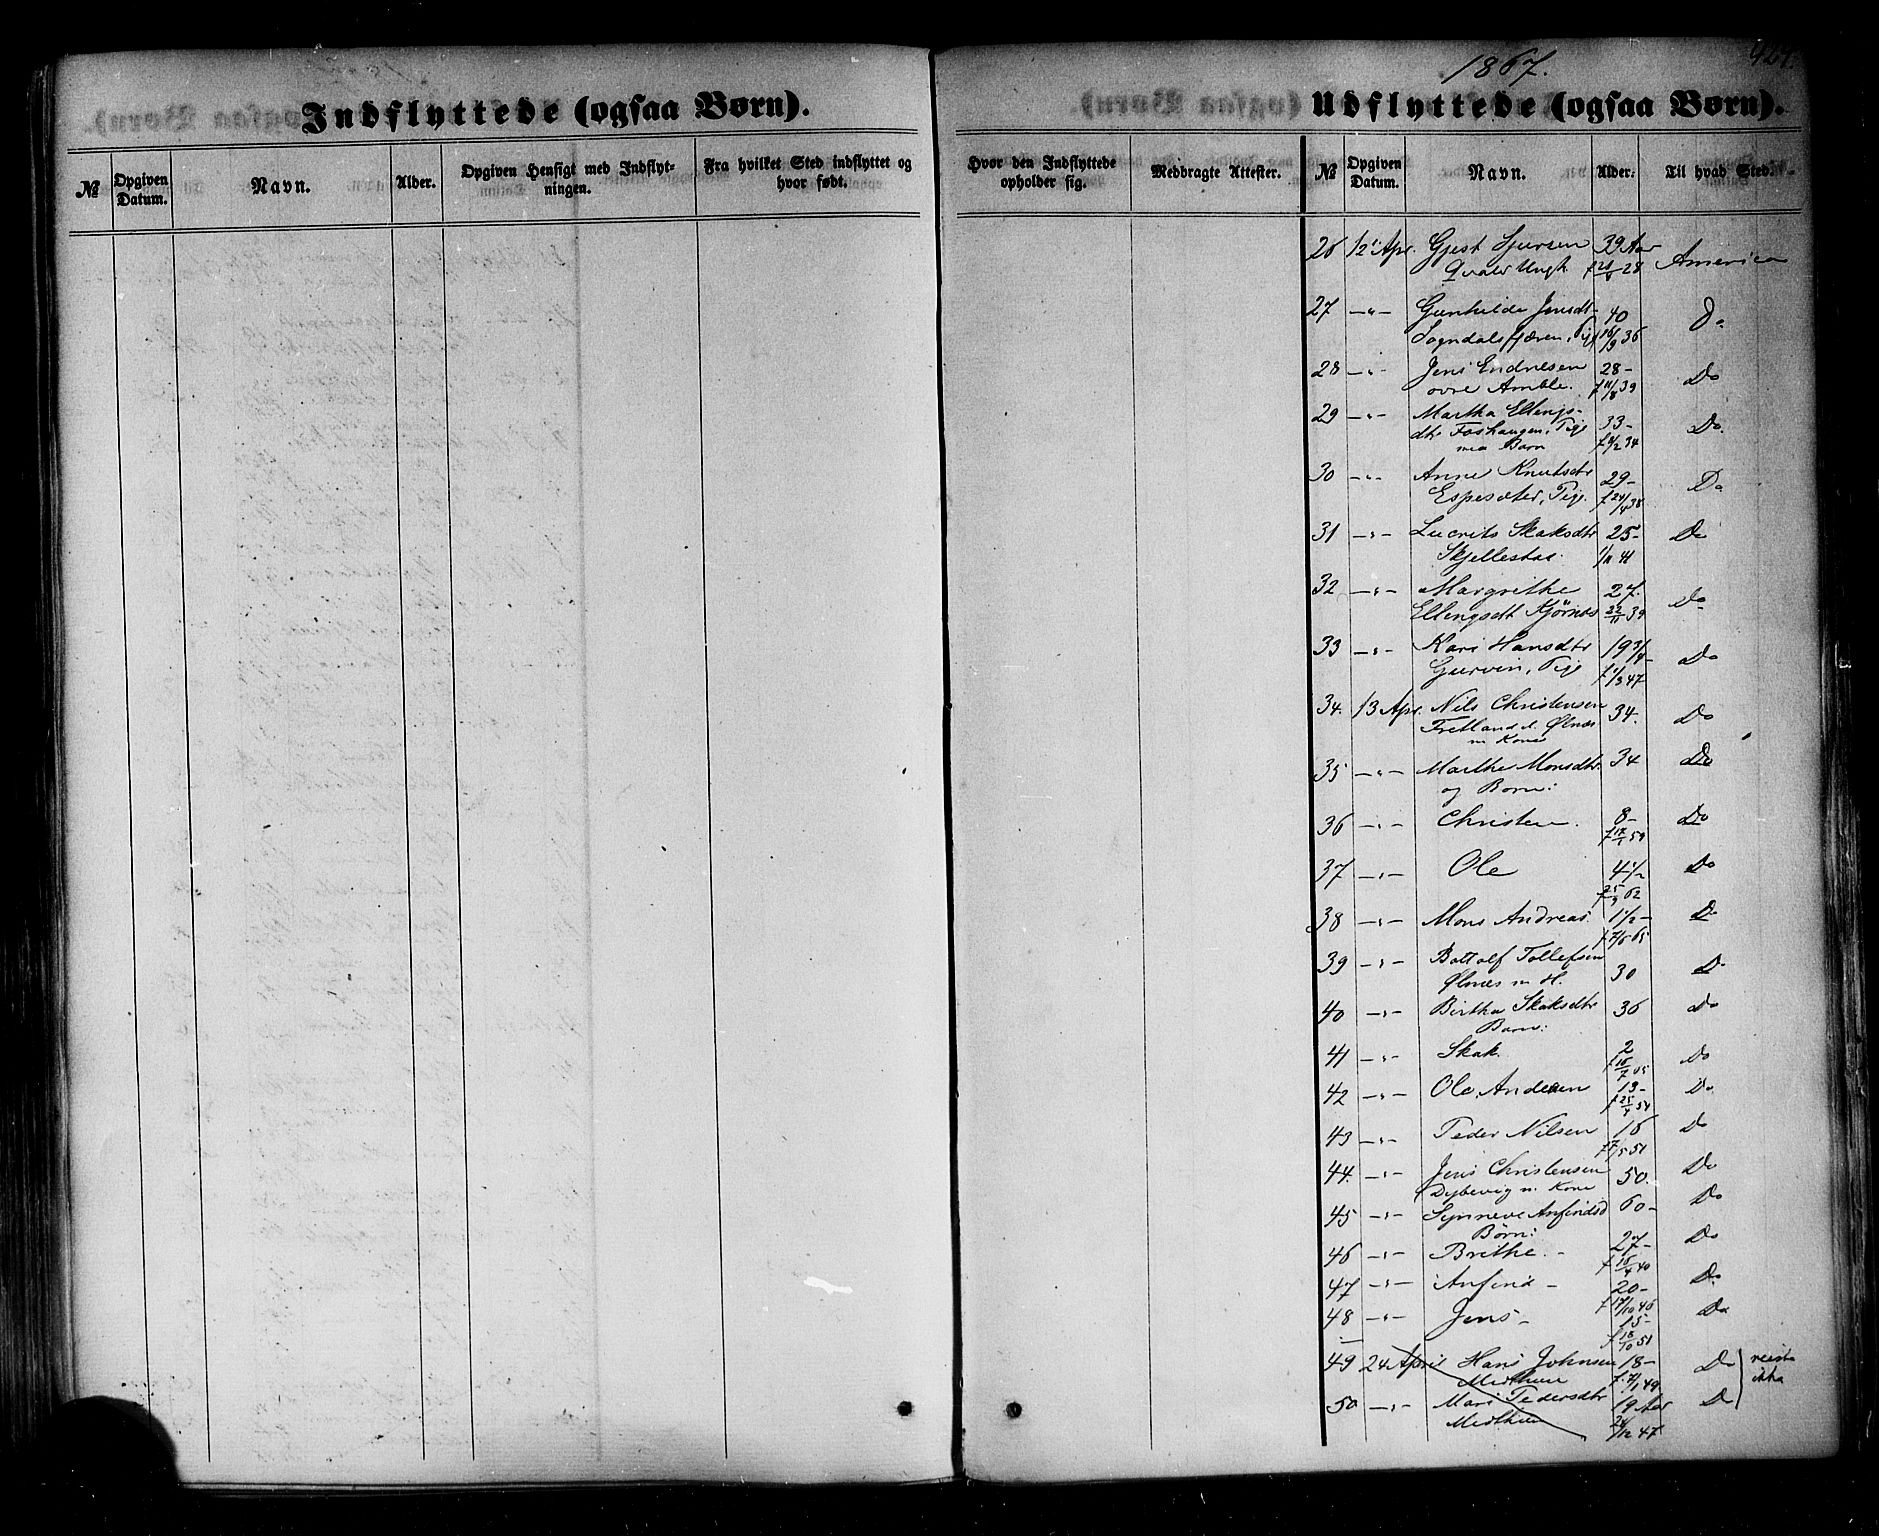 1867.
Indflyttede (ogsaa Børn).
Udflyttede (ogsaa Børn).
№ Opgiven Datum. Navn. Alder. Opgiven Hensigt med Indflyt-ningen. Fra hvilket Sted indflyttet og hvor født.
Hvor den Indflyttede opholder sig. Medbragte Attester. № Opgiven Datum. Navn. Alder. Til hvad Sted.
26 12 Apr. Gjest Sjursen 39 Aar America
Qvale Ungk. 28
27 —"— Gunhilde Jensdt 40 Do
Sogndalsfjæren, Pige 16/9 36
28 —"— Jens Endresen 28- Do
øvre Amble. f 11/8 39
29 —"— Martha Ellings- 33- Do
dtr Foshaugen, Pige
med Barn f 2/2 34
30 —"— Anne Knutsdtr 29- Do
Espesæter, Pige. f 24/4 38
31 —"— Lucrits Skaksdtr 25- Do
Skjellestad. 1/11 41
32 —"— Margrethe 27. Do
Ellingsdt Kjørnes 22/11 39
33 —"— Kari Hansdtr 19 3/4- Do
Gurvin, Pige f 1/3 47
34. 13 Apr. Nils Christensen 34. Do
Fretland d. Ølnæs
m Kone
35 —"— Marthe Monsdtr. 34 Do
og Børn:
36 —"— Christen. 8- Do
f 17/1 59
37 —"— Ole 4 1/2 Do
f 25/9 62
38 —"— Mons Andreas. 1 1/2- Do
f 7/6 65
39 —"— Bottolf Tollefsen 30 Do
Ølnæs m H.
40 —"— Birtha Skaksdtr 36 Do
Barn:
41 —"— Skak. 2 Do
f 16/7 65
42 —"— Ole Andersen 13- Do
f 25/4 54
43 —"— Peder Nilsen 16 Do
f 7/5 51
44. —"— Jens Christensen 50. Do
Dybevig m. Kone
45 —"— Synneve Anfindsd 60- Do
Børn:
46 —"— Brithe. - 27- Do
f 16/4 40
47 —"— Anfind - 20- Do
f 17/10 46
48 —"— Jens - 15- Do
f 18/10 51
49 24 April Hans Johnsen 18- Do reiste
Midthun f. 7/1 49 ikke
50 —"— Mari Pedersdtr 19 Aar Do
Midthun 24/12 47